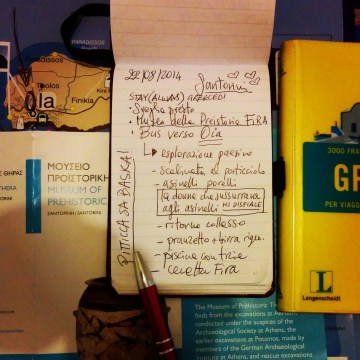 PARADISSOS
Paradissos
Finikia
la
22/08/2014
Santorini
Sveglia presto
Museo della Preistoria FIRA
Bus verso Oia
esplorazione paesino
scalinata al porticciolo
asinelli porelli
la donna che sussurrava
agli asinelli MI DISPIACE
ritorno collasso
pranzetto + birra
piscina con
cenetta Fira
PITICCA SA BASCA!
ΜΟΥΣΕΙΟ
ΠΡΟΪΣΤΟΡΙΚΗΣ
MUSEUM OF
PREHISTORIC
SANTORINI / SANTORIN
ΘΗΡΑΣ
THERA
3000 FRASI
GR
PER VIAGG
Langenscheidt
The Museum of Prehistoric Thera
finds from the excavations at Akrotiri,
conducted under the auspices of the
Archaeological Society at Athens, the
earlier excavations at Potamos, made by
members of the German Archaeological
Institute at Athens, rescue